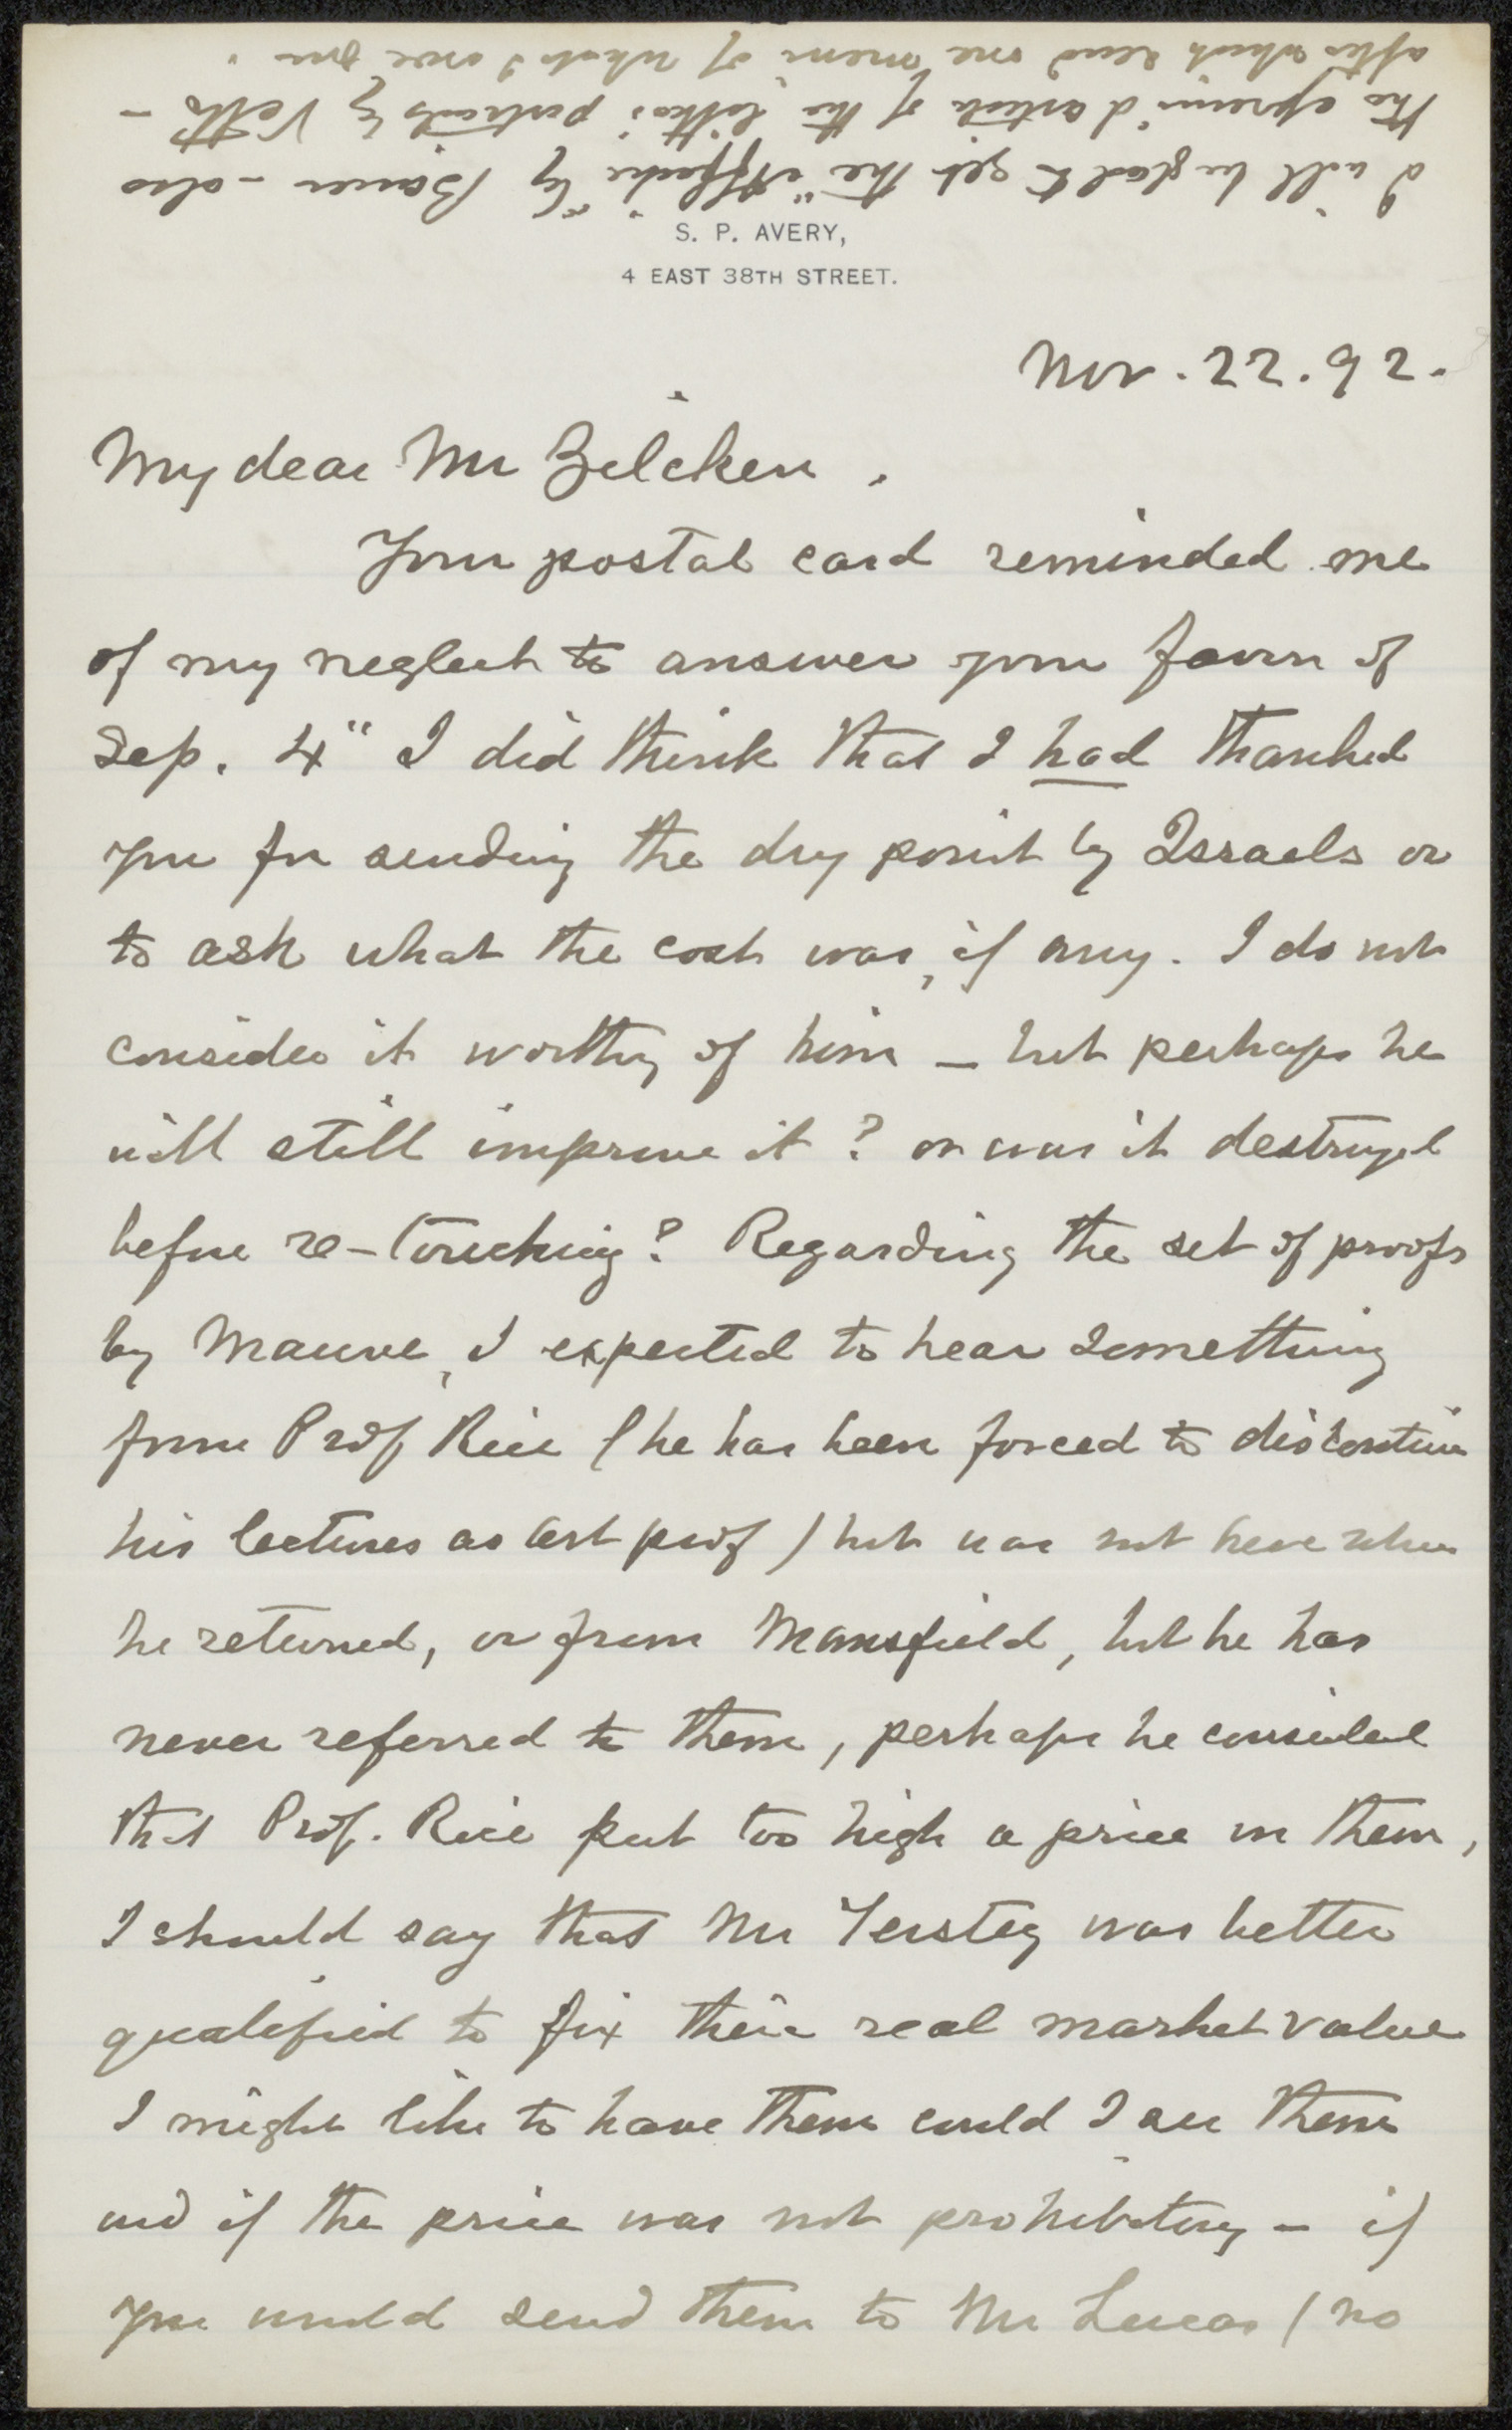 S. P. AVERY,
4 EAST 38TH STREET.
Nov. 22. 92.
My dear Mr Zilcken.
Your postal card reminded me
of my neglect to answer your favor of
Sep. 4" I did think that I had thanked
you for sending the dry point by Israels or
to ask what the cost was, if any. I do not
consider it worthy of him – but perhaps he
will still improve it? or was it destroyed
before re-touching? Regarding the set of proofs
by Mauve, I expected to hear something
from Prof Rice (he has been forced to discontinue
his lectures as Art prof) but was not here when
he returned, or from Mansfield, but he has
never referred to them, perhaps he considered
that Prof. Rice put too high a price on them,
I should say that Mr Tersteg was better
qualified to fix their real market value
I might like to have them could I see them
and if the price was not prohibitory – if
you would send them to Mr Lucas (no
I will be glad to get the by Bauer – also
the article of the portraits by Veth –
after which send me memo of what I owe you.